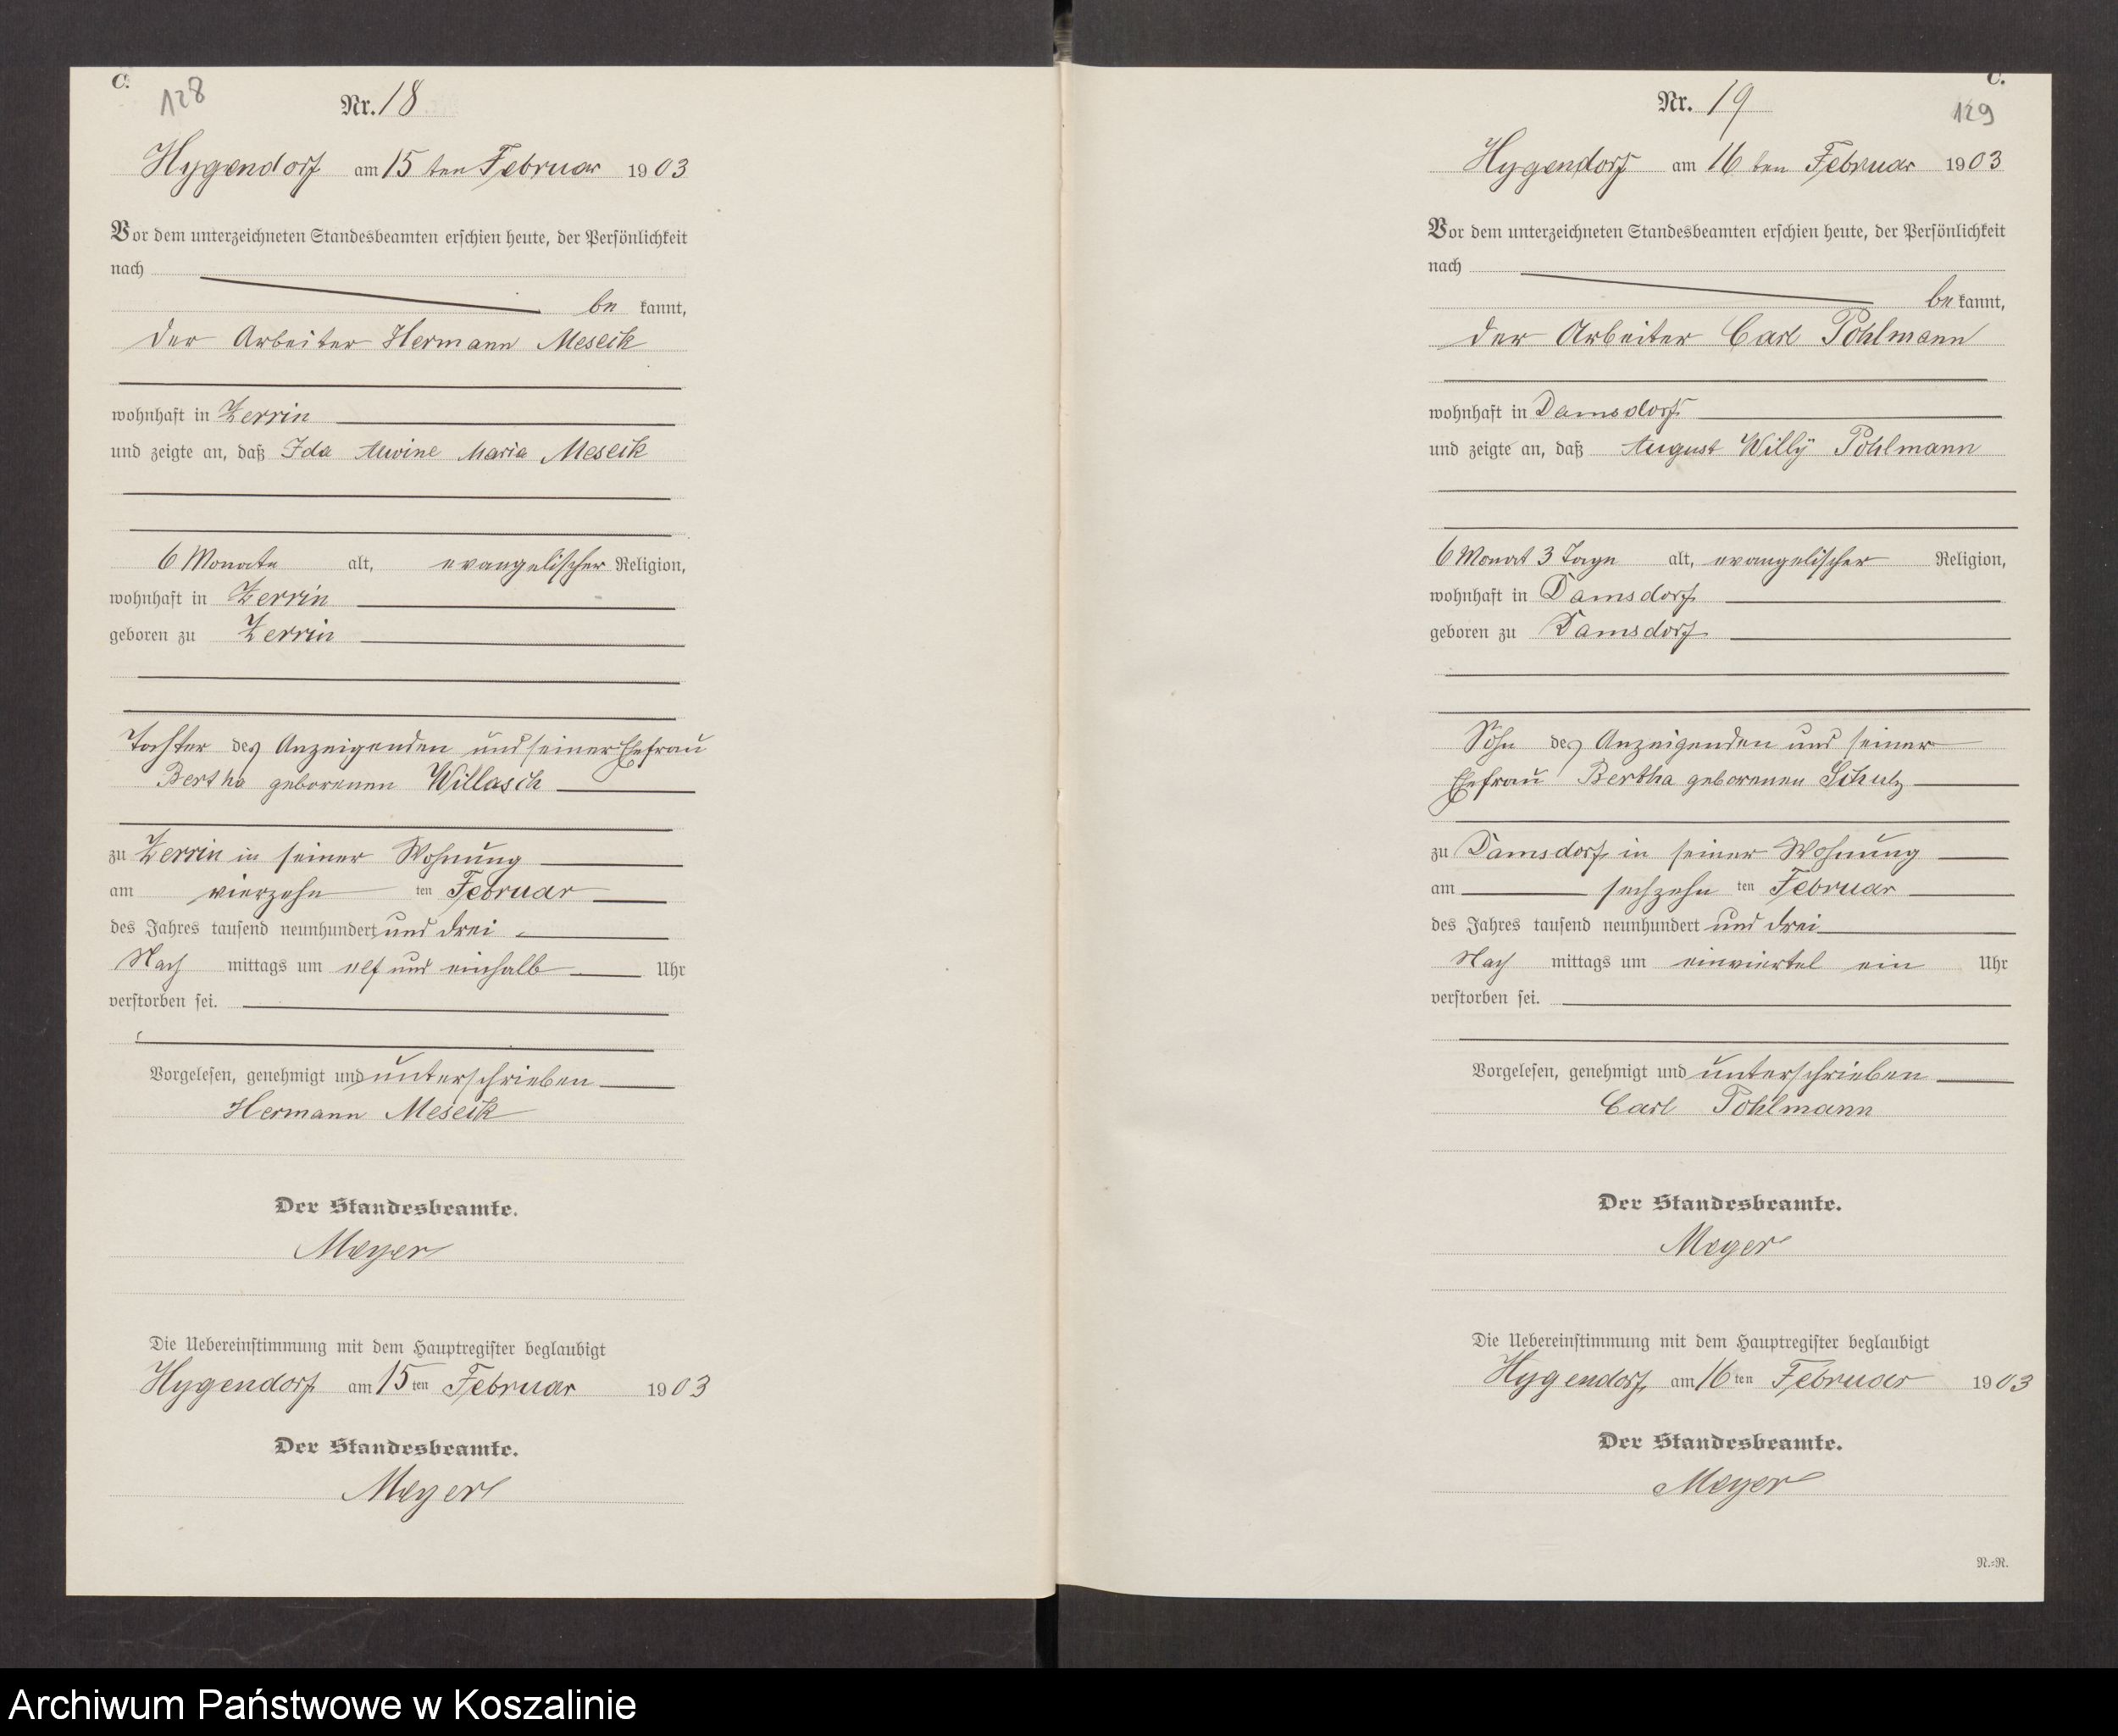 C.
128
Nr. 18
Hygendorf am 15 ten Februar 1903
Vor dem unterzeichneten Standesbeamten erschien heute, der Persönlichkeit
nach
be kannt,
der Arbeiter Hermann Meseik
wohnhaft in Zerrin
und zeigte an, daß Ida Alwine Maria Meseik
6 Monate alt, evangelischer Religion,
wohnhaft in Zerrin
geboren zu Zerrin
Tochter des Anzeigenden und seiner Ehefrau
Bertha geborenen Willasch
zu Zerrin in seiner Wohnung
am vierzehn ten Februar
des Jahres tausend neunhundert und drei
Nach mittags um elf und einhalb Uhr
verstorben sei.
Vorgelesen, genehmigt und unterschrieben
Hermann Meseik
Der Standesbeamte.
Meyer
Die Uebereinstimmung mit dem Hauptregister beglaubigt
Hygendorf am 15 ten Februar 1903
Der Standesbeamte.
Meyer
C.
129
Nr. 19
Hygendorf am 16 ten Februar 1903
Vor dem unterzeichneten Standesbeamten erschien heute, der Persönlichkeit
nach
be kannt,
der Arbeiter Carl Pohlmann
wohnhaft in Damsdorf
und zeigte an, daß August Willy Pohlmann
6 Monat 3 Tage alt, evangelischer Religion,
wohnhaft in Damsdorf
geboren zu Damsdorf
Sohn des Anzeigenden und seiner
Ehefrau Bertha geborenen Schulz
zu Damsdorf in seiner Wohnung
am sechzehn ten Februar
des Jahres tausend neunhundert und drei
Nach mittags um einviertel ein Uhr
verstorben sei.
Vorgelesen, genehmigt und unterschrieben
Carl Pohlmann
Der Standesbeamte.
Meyer
Die Uebereinstimmung mit dem Hauptregister beglaubigt
Hygendorf am 16 ten Februar 1903
Der Standesbeamte.
Meyer
N.=N.
Archiwum Państwowe w Koszalinie